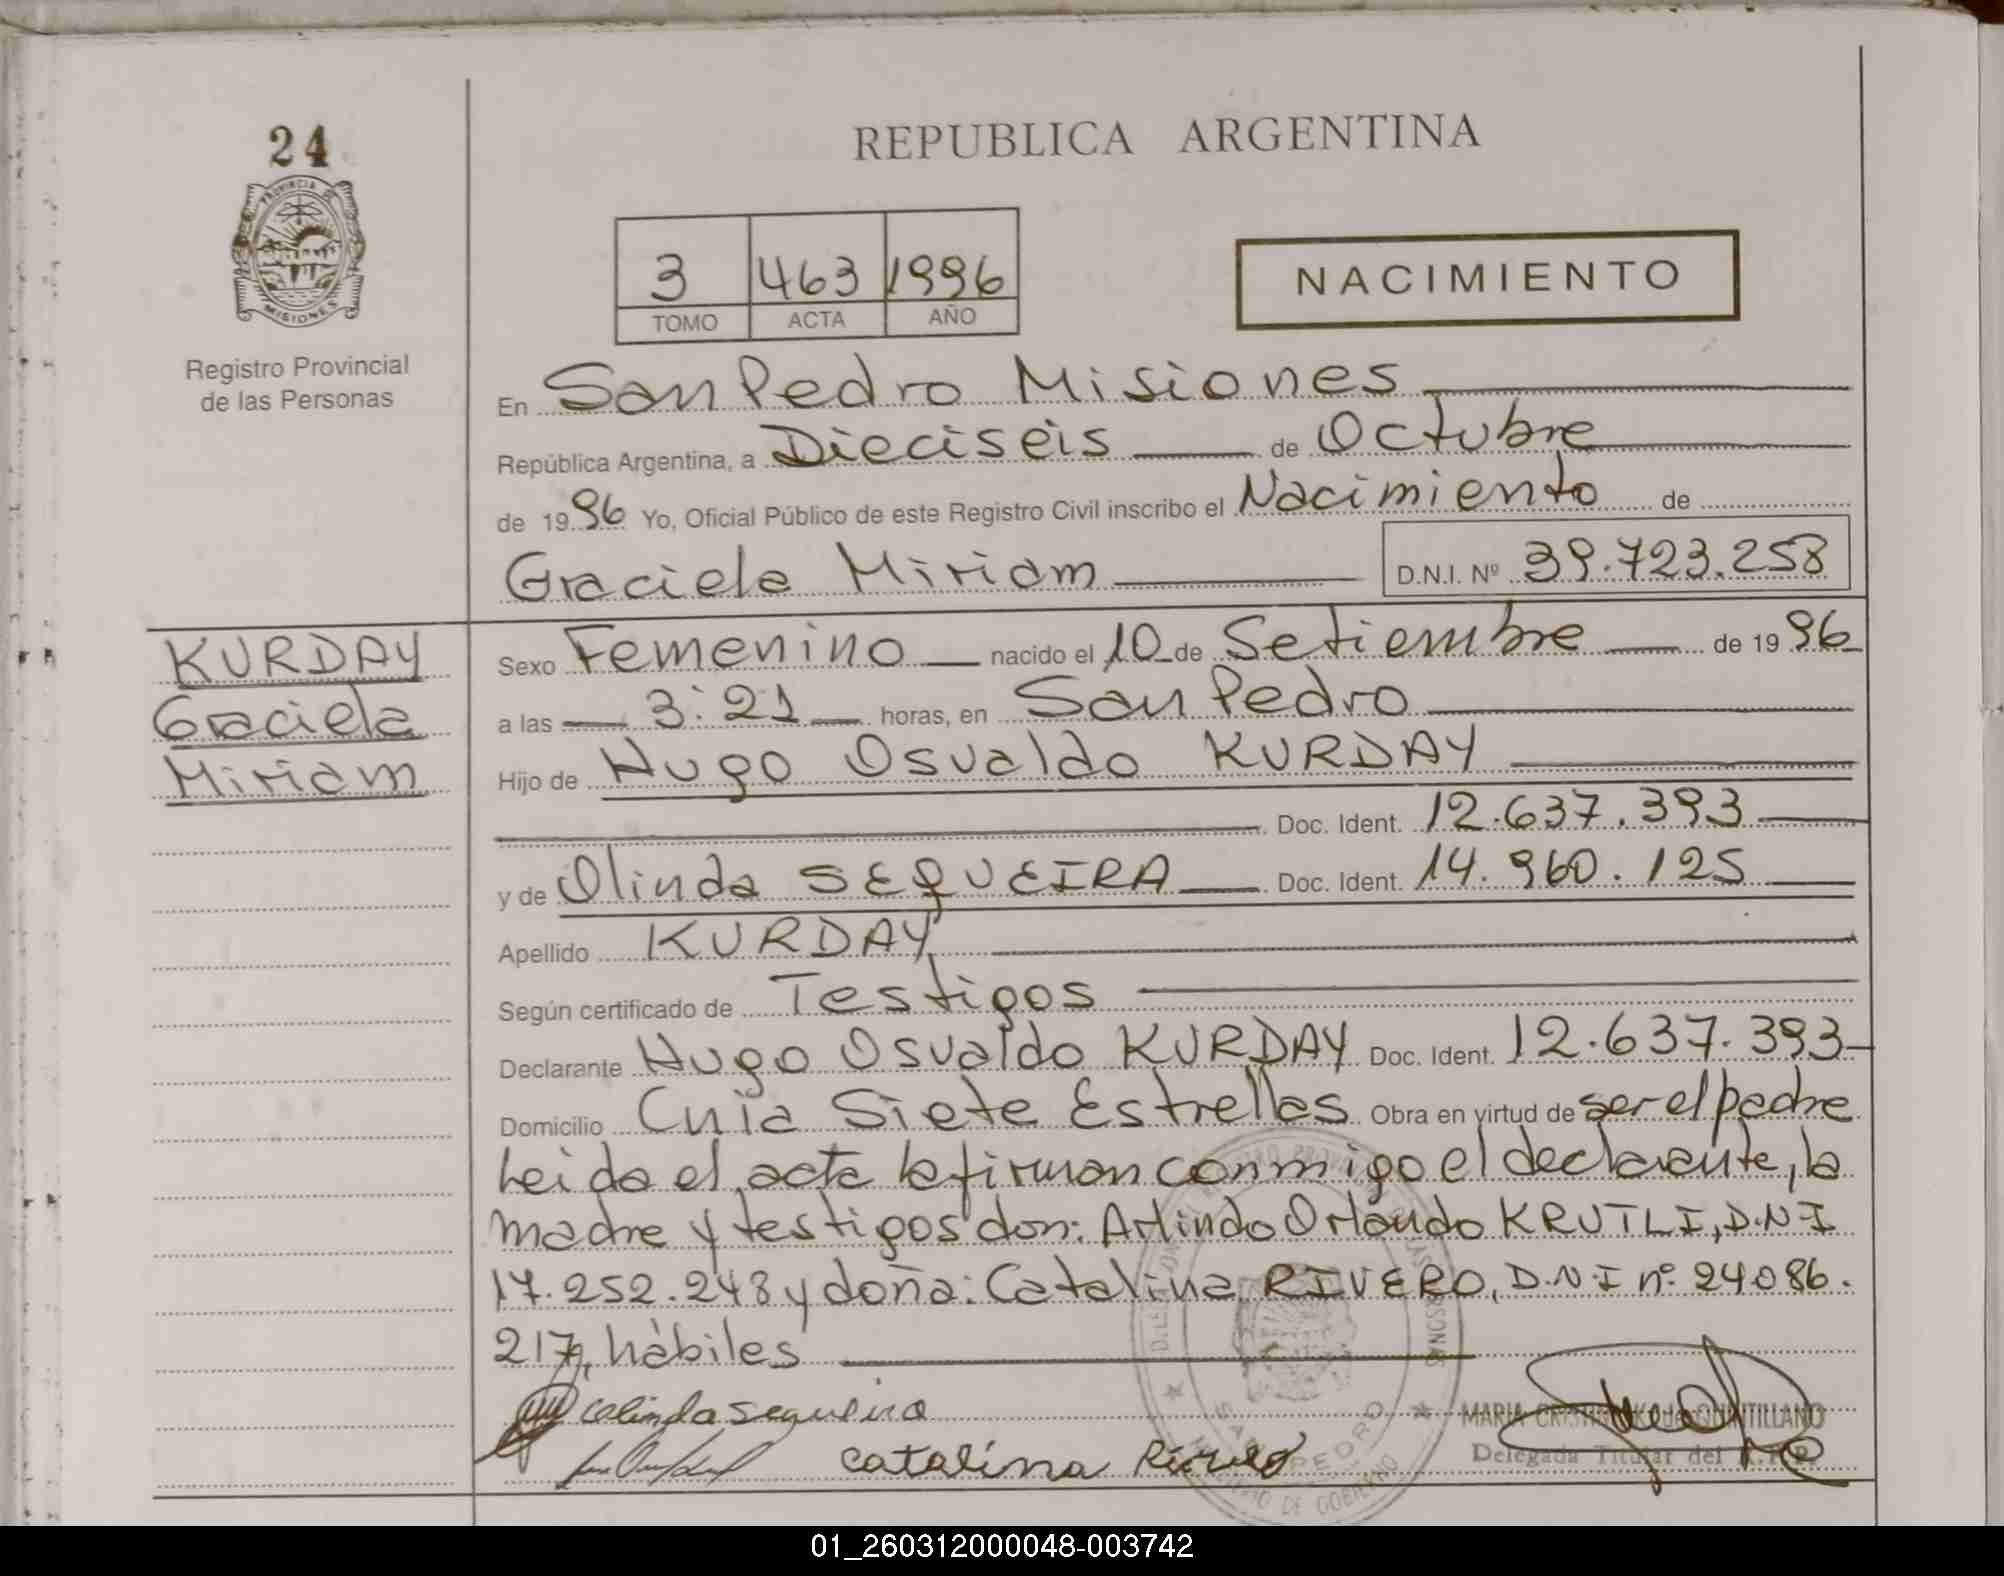 24
PROVINCIA DE
MISIONES
Registro Provincial
de las Personas
REPUBLICA ARGENTINA
3 463 1996
TOMO ACTA AÑO
NACIMIENTO
En San Pedro Misiones
República Argentina, a Dieciseis de Octubre
de 1996 Yo, Oficial Público de este Registro Civil inscribo el Nacimiento de
Graciela Miriam D.N.I. Nº 39.723.258
KURDAY
Graciela
Miriam
Sexo Femenino nacido el 10 de Setiembre de 1996
a las 3:21 horas, en San Pedro
Hijo de Hugo Osvaldo KURDAY
Doc. Ident. 12.637.393
y de Olinda SEQUEIRA Doc. Ident. 14.960.125
Apellido KURDAY
Según certificado de Testigos
Declarante Hugo Osvaldo KURDAY Doc. Ident. 12.637.393
Domicilio Cnia Siete Estrellas Obra en virtud de ser el padre
Leida el acta la firman conmigo el declarante, la
madre y testigos don: Arlindo Orlando KRUTLI, D.N.I
17.252.248 y doña: Catalina RIVERO, D.N.I nº 24.086.
217, hàbiles
olinda sequeira
catalina Rivero
MARIA QUINTILLANO
Delegada Titular del R.P.P.
SAN PEDRO
DE GOBIERNO
01_260312000048-003742